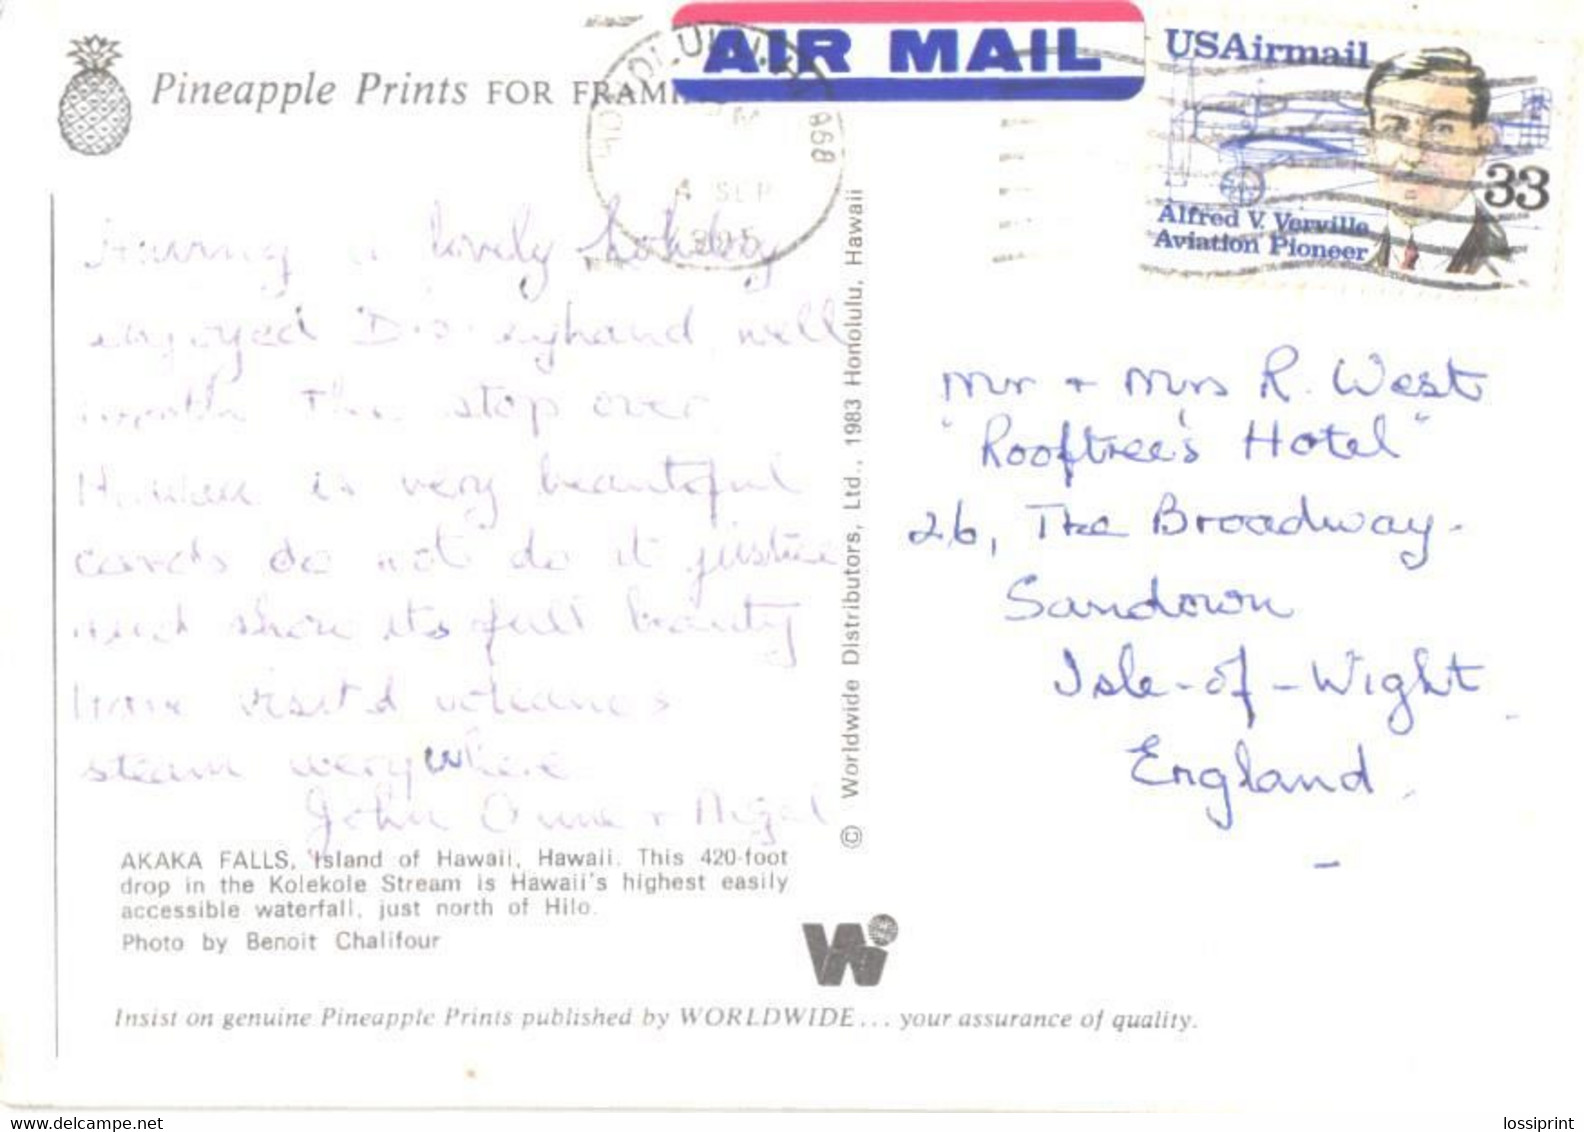 Pineapple Prints FOR FRAMING
AIR MAIL
USAirmail
33
Alfred V. Verville
Aviation Pioneer
HONOLULU, HI 968
PM
4 SEP
1985
Having a lovely holiday
enjoyed Disneyland well
worth the stop over
Hawaii is very beautiful
cards do not do it justice
and show its full beauty
have visit'd volcanos
steam everywhere
John Anne + Nigel
AKAKA FALLS, Island of Hawaii, Hawaii. This 420-foot
drop in the Kolekole Stream is Hawaii's highest easily
accessible waterfall, just north of Hilo.
Photo by Benoit Chalifour
© Worldwide Distributors, Ltd., 1983 Honolulu, Hawaii
Mr + Mrs R. West
"Rooftree's Hotel"
26, The Broadway.
Sandown
Isle-of-Wight
England.
W
Insist on genuine Pineapple Prints published by WORLDWIDE... your assurance of quality.
View and buy at delcampe.net
lossiprint